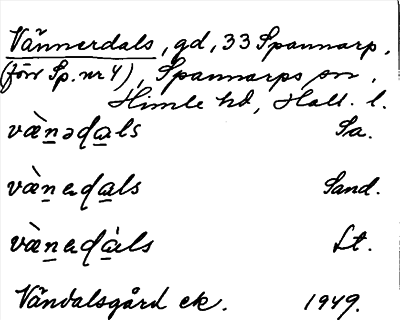 Vännerdals, gd, 33 Spannarp,
(förr Sp. nr 4), Spannarps sn,
Himle hd, Hall. l.
væ̀nədals Sa.
væ̀nedals Sand.
væ̀nedàls Lt.
Vändalsgård ek. 1949.